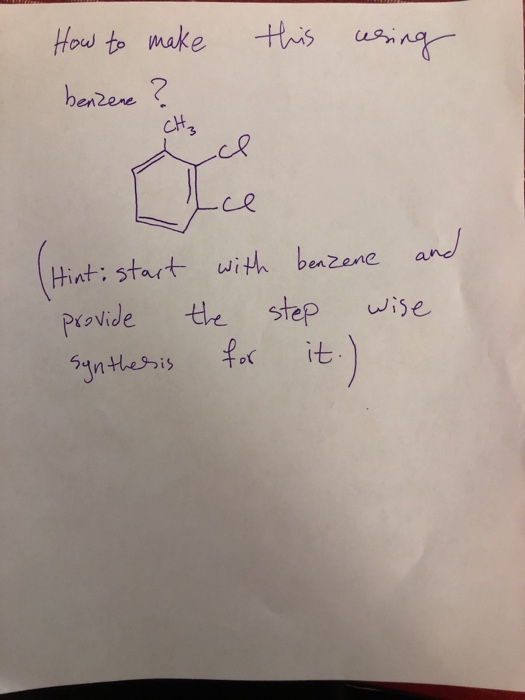 How to make this using
benzene ?
CH3
Cl
Cl
(Hint: start with benzene and
provide the step wise
synthesis for it.)